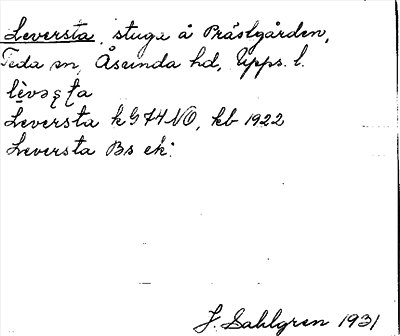 Leversta, stuga å Prästgården,
Teda sn, Åsunda hd, Upps. l.
lèvəʂʈa
Leversta kG 74 NO, kb 1922
Leversta Bs ek:
J. Sahlgren 1931